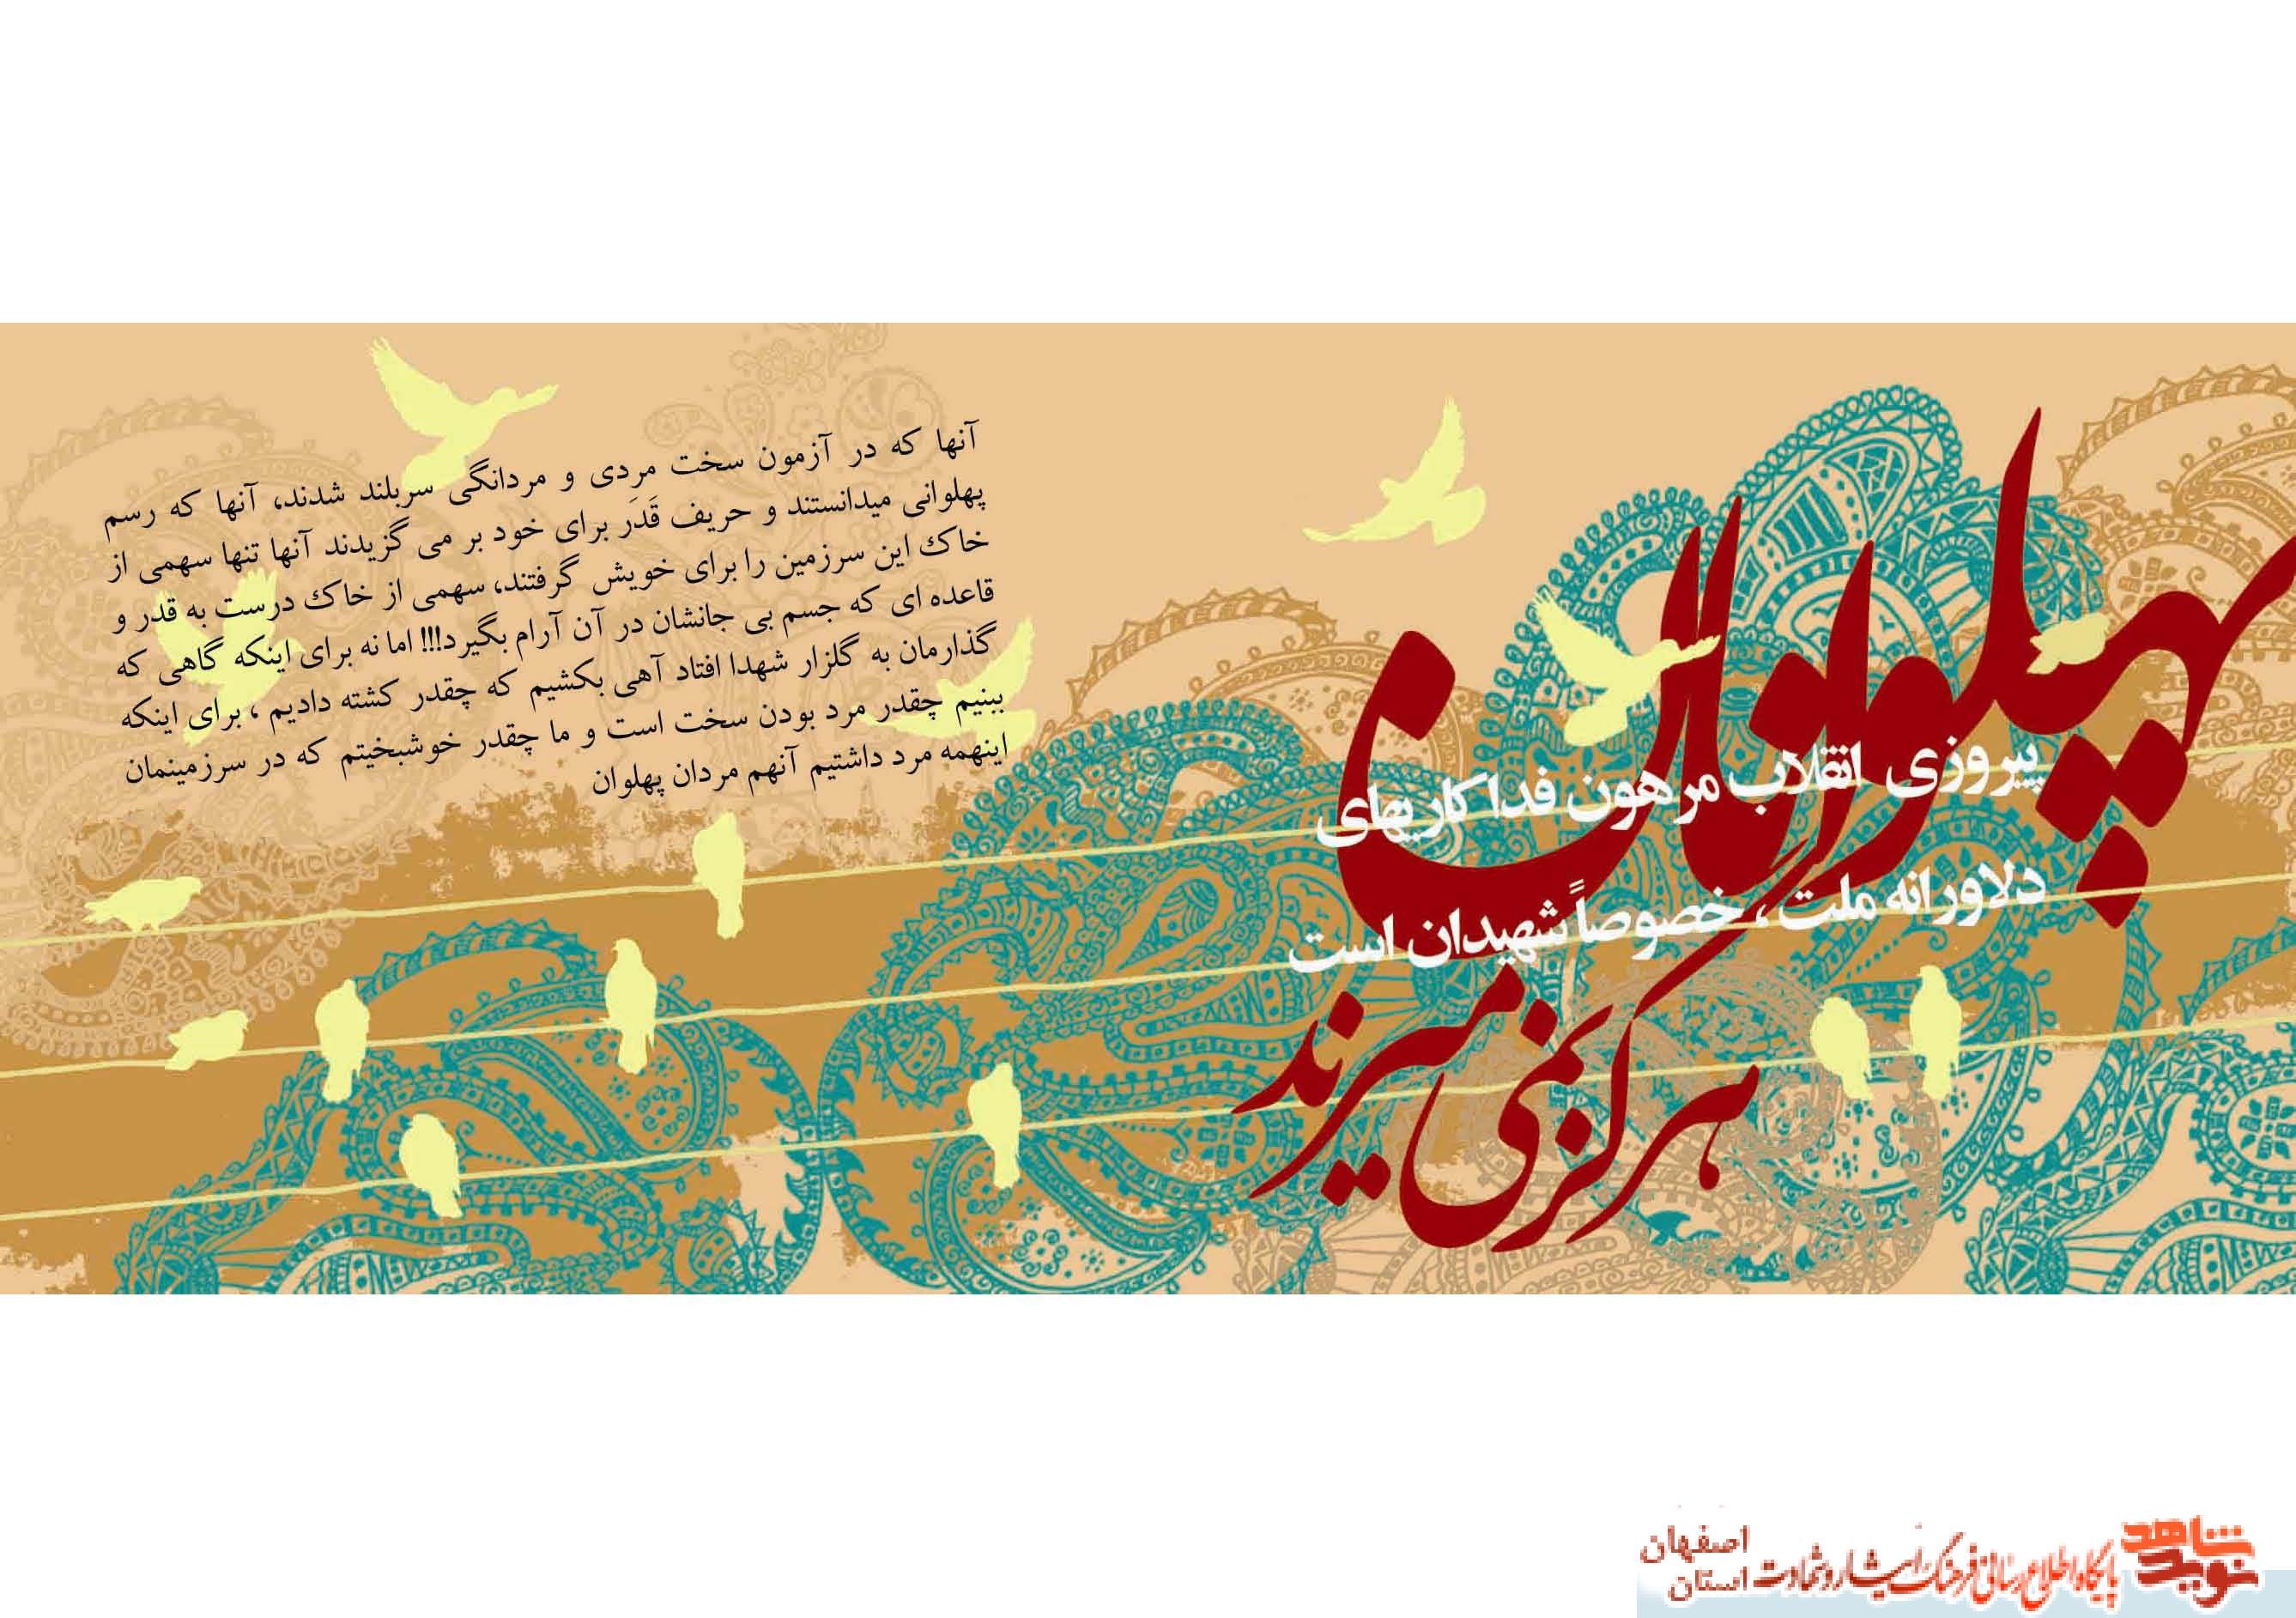 پهلوانان
پیروزی انقلاب مرهون فداکاریهای
دلاورانه ملت، خصوصاً شهیدان است
هرگز نمی میرند
آنها که در آزمون سخت مردی و مردانگی سربلند شدند، آنها که رسم
پهلوانی میدانستند و حریف قَدَر برای خود بر می گزیدند آنها تنها سهمی از
خاک این سرزمین را برای خویش گرفتند، سهمی از خاک درست به قدر و
قاعده ای که جسم بی جانشان در آن آرام بگیرد!!! اما نه برای اینکه گاهی که
گذارمان به گلزار شهدا افتاد آهی بکشیم که چقدر کشته دادیم ، برای اینکه
ببنیم چقدر مرد بودن سخت است و ما چقدر خوشبختیم که در سرزمینمان
اینهمه مرد داشتیم آنهم مردان پهلوان
نوید شاهد
پایگاه اطلاع رسانی فرهنگ ایثار و شهادت استان
اصفهان